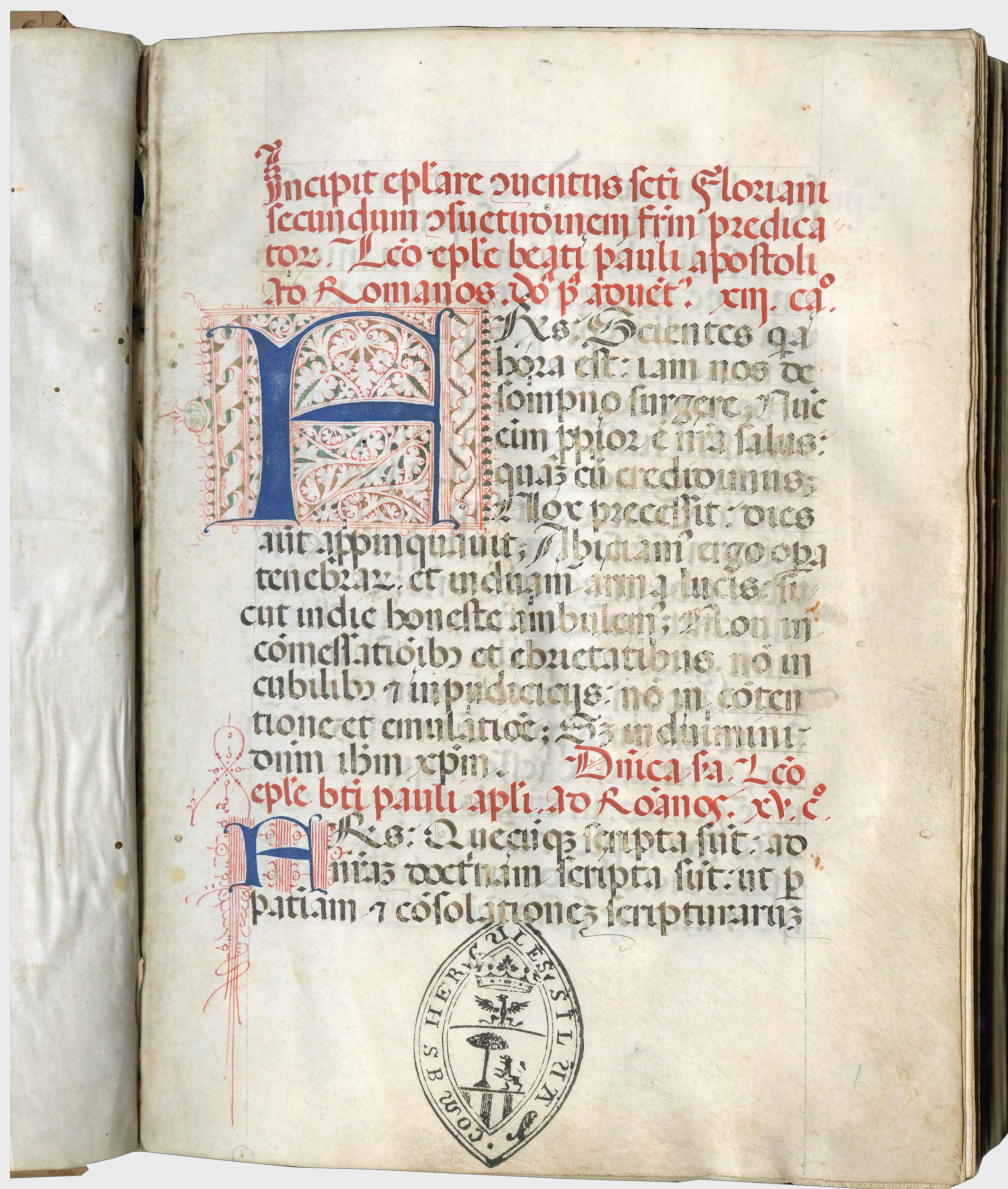 Incipit epl̄are ɔuentus scti Floriani
secundum ɔsuetudinem frm̄ predica
toꝝ. Lc̄o epl̄e beati pauli apostoli
ad Romanos. do᷑ pͣ aduēt᷑. xiij. ca°.
FRs: Scientes qa
hora est: iam nos de
sompno surgere. Nūc
eīm ꝓpior ē nr̄a salus:
quaʒ cū credidimus;
Nox precessit: dies
aūt appinquauit; Abiciam᷒ ergo oꝑa
tenebraꝝ: et induam᷒ arma lucis: si-
cut in die honeste ambulem᷒; Non in
cōmessatiōibꝫ et ebrietatibus. nō in
cubilibꝫ ⁊ inpudicicijs: nō in cōten
tione et emulatiōe; Sʒ induimini
dūm ihm̄ xp̄m.
Dnīca s̄a. Lc̄o
epl̄e btī pauli apl̄i. ad Roānos. xv. c°.
FRs: Quecūqʒ scripta sūt: ad
nr̄aʒ doctͥnam scripta sūt: ut ꝑ
patiam ⁊ cōsolationeʒ scripturaruʒ
COM BS HERCULES SILUA